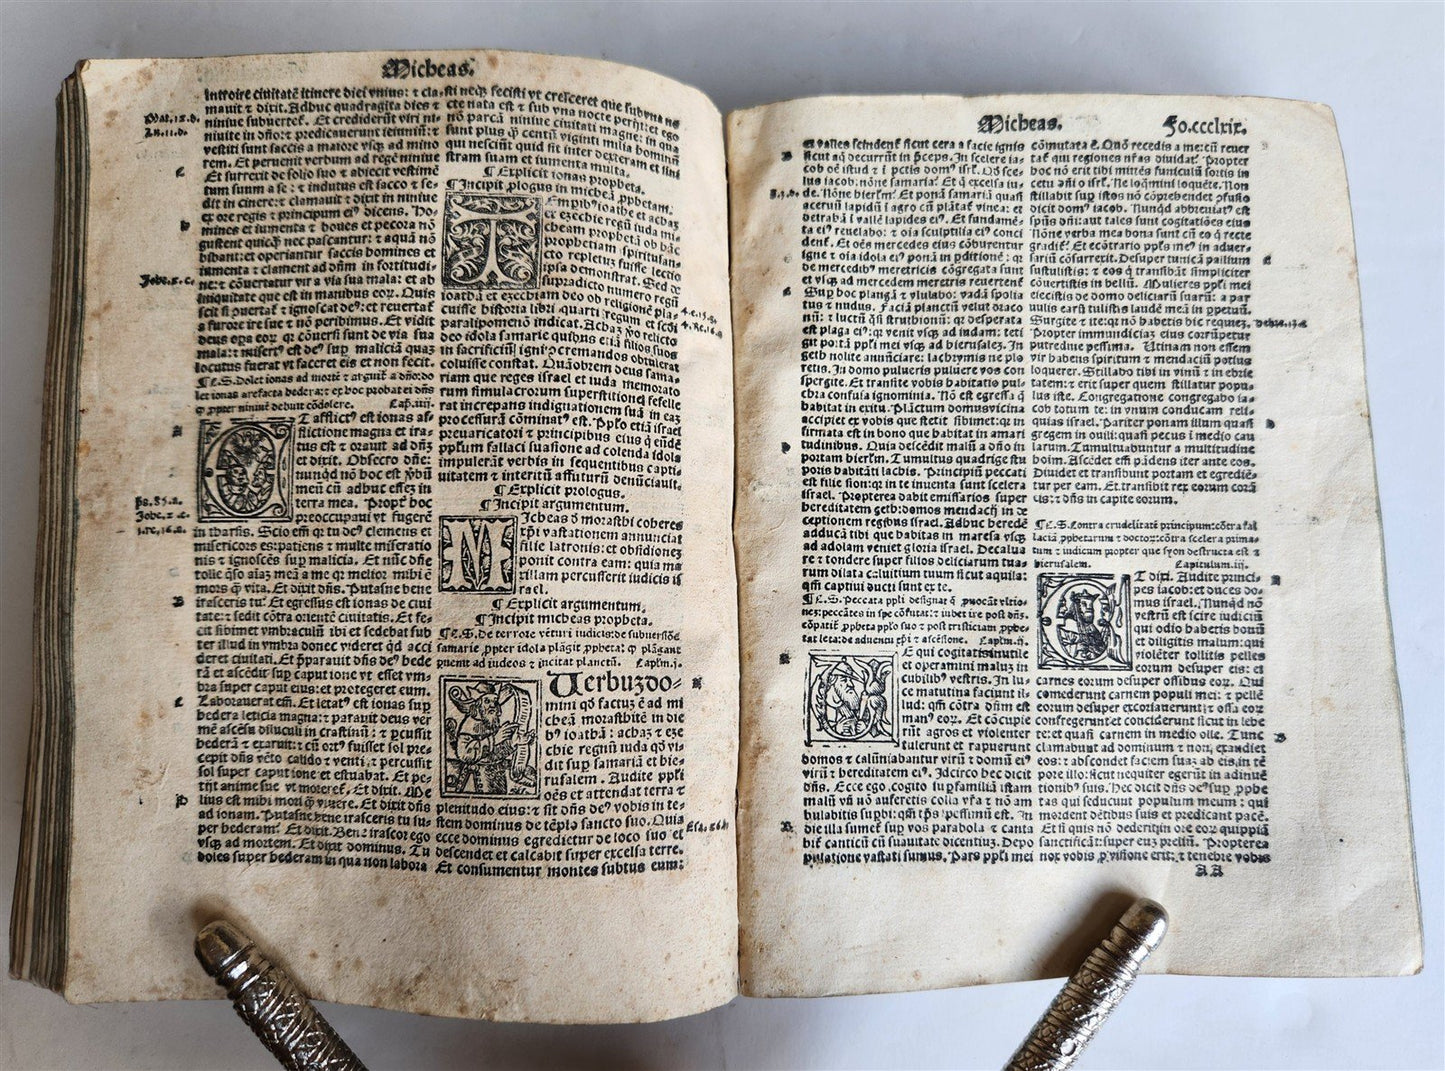 Micheas.
Introire ciuitatē itinere diei vnius: ⁊ cla-
mauit ⁊ dixit. Adhuc quadragita dies ⁊
niniue subuertet̄. Et crediderūt viri ni-
niuite in dn̄o: ⁊ predicauerunt ieiuniū: ⁊
vestiti sunt saccis a maiore vsq̄ ad mino
rem. Et peruenit verbum ad regē niniue
Et surrexit de solio suo ⁊ abiecit vestimē
tum suum a se: ⁊ indutus est sacco ⁊ se-
dit in cinere: ⁊ clamauit ⁊ dixit in niniue
ex ore regis ⁊ principum eiꝰ dicens. Ho-
mines ⁊ iumenta ⁊ boues ⁊ pecora nō
gustent quicq̄ nec pascantur: ⁊ aquā nō
bibant: et operiantur saccis homines et
iumenta ⁊ clament ad dn̄m in fortitudi-
ne: ⁊ cōuertatur vir a via sua mala: et ab
iniquitate que est in manibus eoꝝ. Quis
scit si ⁊ ignoscat deꝰ: et reuertat̄
a furore ire sue ⁊ nō peribimus. Et vidit
deus opa eoꝝ qꝛ cōuersi sunt de via sua
mala: ⁊ misert est deꝰ sup maliciā quaz
locutus fuerat vt faceret eis et non fecit.
¶ C.S. Dolet ionas ad mortē ⁊ arguit a dn̄o: do
let ionas arefacta hedera: et hoc probat ei dn̄s
q ꝓpter niniuē debuit cōdolere. Cap. iiij.
T afflictꝰ est ionas af-
flictione magna et ira-
tus est ⁊ orauit ad dn̄z
et dixit. Obsecro dn̄e:
nunqd nō hoc est ꝟbū
meū cū adhuc essez in
terra mea. Propt hoc
preoccupaui vt fugerē
in tharsis. Scio em̄ qꝛ tu deꝰ clemens et
misericors es: patiens ⁊ multe miseratio
nis ⁊ ignoscēs sup malicia. Et nūc dn̄e
tolle qso aiaz meā a me qꝛ melior mihi ē
mors q̄ vita. Et dixit dn̄s. Putasne bene
irasceris tu. Et egressus est ionas de ciui
tate: ⁊ sedit cōtra orientē ciuitatis. Et fe-
cit sibimet vmbraculū ibi et sedebat sub
ter illud in vmbra donec videret qd acci
deret ciuitati. Et p̄parauit dn̄s deꝰ hede
rā et ascēdit sup caput ione vt esset vm-
bra super caput eius: et protegeret eum.
Laborauerat em̄. Et letatꝰ est ionas sup
hedera leticia magna: ⁊ parauit deus ver
mē ascēsu diluculi in crastinū: ⁊ ꝑcussit
hederā ⁊ exaruit: ⁊ cū ortꝰ fuisset sol pre-
cepit dn̄s vēto calido ⁊ venti: ⁊ percussit
sol super caput ione et estuabat. Et pe-
tijt anime sue vt moreret̄. Et dixit. Me
lius est mihi mori q̄ viuere. Et dixit dn̄s
ad ionam. Putasne bene irasceris tu su-
per hederam. Et dixit. Bene irascor ego
vsq̄ ad mortem. Et dixit dominus. Tu
doles super hederam in qua non labora
sti neq̄ fecisti vt cresceret que sub vna no
cte nata est ⁊ sub vna nocte perijt: et ego
nō parcā niniue ciuitati magne: in qua
sunt plus q̄ centū viginti milia hominū
qui nesciunt quid sit inter dexteram et sini
stram suam et iumenta multa.
¶ Explicit ionas propheta.
¶ Incipit ꝓlogus in micheā ꝓphetam.
Empibꝰ ioathe et achaz
et ezechie regū iuda mi-
cheam prophetā ob hāc
prophetiam spiritusan-
cto repletuz fuisse lectio
ipsa demonstrat. Sed de
supradicto numero regū
ioathā et ezechiam deo ob religionē pla-
cuisse historia libri quarti regum et scd̄i
paralipomenō indicat. Achaz ꝟo relicto
deo idola samarie quibus etiā filios suos
in sacrificiū igni ꝯcremandos obtulerat
coluisse constat. Quāobrem deus sama-
riam que reges israel et iuda memorato
rum simulacrorum superstitione fefelle
rat increpans indignationem suā in eaz
processurā cōminatꝰ est. Pplo etiā israel
preuaricatori ⁊ principibus eius q eūdē
pplm fallaci suasione ad colenda idola
impulerāt verbis in sequentibus capti-
uitatem ⁊ interitū affuturū denūciauit.
¶ Explicit prologus.
¶ Incipit argumentum.
Icheas d̄ morasthi coheres
xp̄i vastationem annunciat
filie latronis: et obsidionez
ponit contra eam: quia ma
xillam percusserit iudicis is
rael.
¶ Explicit argumentum.
¶ Incipit micheas propheta.
¶ C.S. De terrore vēturi iudicis: de subuersiōe
samarie ꝓpter idola plāgit ꝓpheta: q plāgant
ꝑueniūt ad iudeos ⁊ incitat planctū. Caplm. j.
Uerbuz do-
mini qd̄ factuz ē ad mi
cheā morasthitē in die
bꝰ ioathā: achaz ⁊ eze
chie regnū iuda qd̄ vi-
dit sup samariā et hie-
rusalem. Audite ppli
oēs et attendat terra ⁊
plenitudo eius: ⁊ sit dn̄s deꝰ vobis in te-
stem dominus de tēplo sancto suo. Quia
ecce dominus egredietur de loco suo et
descendet et calcabit super excelsa terre.
Et consumentur montes subtus eum:
Mat. 12. d.
Lu. 11. d.
C
D
Johe. 2. c.
A
ps. 85. a.
Johe. 2. c.
B
C
D
4. Re. 16. a
A
Esa. 26. d
Micheas.
Fo. ccclxix.
et valles scindent̄ sicut cera a facie ignis
sicut aq̄ decurrūt in p̄ceps. In scelere ia-
cob oē istud ⁊ i pctis domꝰ isrl̄. Qd̄ sce-
lus iacob: nōne samaria: Et q̄ excelsa iu-
de. Nōne hierlm̄: Et ponā samariā quasi
aceruū lapidū i agro cū plātat̄ vinea: et
detrahā i vallē lapides eiꝰ. Et fundamē-
ta eiꝰ reuelabo: et oīa sculptilia eiꝰ conci
dent̄. Et oēs mercedes eius cōburentur
igne ⁊ oīa idola eiꝰ ponā in ꝑditionē: qꝛ
de mercedibꝰ meretricis cōgregata sunt
et vsq̄ ad mercedem meretris reuertent̄
Sup hoc plangā ⁊ vlulabo: vadā spolia
tus ⁊ nudus. Faciā planctū velut draco
nū: ⁊ luctū q̄si struthionū: qꝛ desperata
est plaga eiꝰ: qꝛ venit vsq̄ ad iudam: teti
git portā ppli mei vsq̄ ad hierusalez. In
geth nolite annūciare: lachrymis ne plo
retis. In domo pulueris puluere vos con
spergite. Et transite vobis habitatio pul-
chra confusa ignominia. Nō est egressa q̄
habitat in exitu. Plāctum domus vicina
accipiet ex vobis que stetit sibimet: qꝛ in
firmata est in bono que habitat in amari
tudinibus. Quia descēdit malū a dn̄o in
portam hierlm̄. Tumultus quadrige stu
poris habitāti lachis. Principiū peccati
est filie sion: qꝛ in te inuenta sunt scelera
israel. Propterea dabit emissarios super
hereditatem geth: domos mendacij in de
ceptionem regibus israel. Adhuc heredē
adducā tibi que habitas in maresa vsq̄
ad adolam veniet gloria israel. Decalua
re ⁊ tondere super filios deliciarum tua-
rum: dilata caluitium tuum sicut aquila:
qm̄ captiui ducti sunt ex te.
¶ C.S. Peccata ppli designat q ꝓuocāt vltio-
nez: peccātes in spe cōfutat: ⁊ iubet ire post dn̄s.
Caplm. ij.
E qui cogitatis inutile
et operamini maluz in
cubilibꝰ vestris. In lu-
ce matutina faciunt il-
lud: qm̄ cōtra dn̄m est
manꝰ eoꝝ. Et cōcupie
rūt agros et violenter
tulerunt et rapuerunt
domos ⁊ calūniabantur virū ⁊ domū eiꝰ
virū ⁊ hereditatem eiꝰ. Idcirco hec dicit
dn̄s. Ecce ego cogito sup familiā istam
malū vn̄ nō auferetis colla vr̄a ⁊ nō am
bulabitis supbi: qm̄ tp̄s pessimū est. In
die illa sumet̄ sup vos parabola ⁊ canta
bit̄ canticū cū suauitate dicentiuz. Depo
pulatione vastati sumus. Pars ppli mei
cōmutata ē. Quō recedit a me: cū reuer
tat̄ qui regiones nr̄as diuidat̄. Propter
hoc nō erit tibi mittēs funiculū sortis in
cetu dn̄i o isrl̄. Ne loq̄mini loquēte. Non
stillabit sup istos nō cōprehendet ꝯfusio
dicit domꝰ iacob. Nunqd abbreuiatꝰ est
spūs dn̄i: aut tales sunt cogitatiōes eius
Nōne verba mea bona sunt cū eo q̄ recte
gradit̄: Et ecōtrario ppls meꝰ in aduer-
sariū cōsurrexit. Desuper tunicā pallium
sustulistis: ⁊ eos q̄ trāsibāt simpliciter
cōuertistis in bellū. Mulieres ppli mei
eiecistis de domo deliciarū suarū: a par
uulis earū tulistis laudē meā in ꝑpetuū.
Surgite ⁊ ite: qꝛ nō habetis hic requiez.
Propter immundiciaz eius corrūpetur
putredine pessima. Utinam non essem
vir habens spiritum ⁊ mendaciū potius
loquerer. Stillabo tibi in vinū ⁊ in ebrie
tatem: ⁊ erit super quem stillatur popu-
lus iste. Congregatione congregabo ia-
cob totum te: in vnum conducam reli-
quias israel. Pariter ponam illum quasi
gregem in ouili: quasi pecus i medio cau
larum. Tumultuabuntur a multitudine
hoim. Ascēdet em̄ pādens iter ante eos.
Diuidet et transibunt portam et egredie-
tur per eam. Et transibit rex eorum corā
eis: ⁊ dn̄s in capite eorum.
¶ C.S. Contra crudelitatē principum: cōtra fal
laciā ꝓphetarum ⁊ doctoꝝ: cōtra scelera prima-
tum ⁊ iudicum propter que syon destructa est ⁊
hierusalem. Capitulum. iij.
T dixi. Audite princi-
pes iacob: et duces do-
mus israel. Nunqd nō
vestrū est scire iudiciū
qui odio habetis bonū
et diligitis malum: qui
violēter tollitis pelles
eorum desuper eis: et
carnes eorum desuper ossibus eoꝝ. Qui
comederunt carnem populi mei: ⁊ pellē
eorum desuper excoriauerunt: ⁊ ossa eoꝝ
confregerunt et conciderunt sicut in lebe
te: et quasi carnem in medio olle. Tunc
clamabunt ad dominum ⁊ non exaudiet
eos: ⁊ abscondet faciem suaz ab eis in tē
pore illo: sicut nequiter egerūt in adinuē
tionibꝰ suis. Hec dicit dn̄s deꝰ sup ꝓphe
tas qui seducunt populum meum: qui
mordent dētibus suis et predicant pacē.
Et si quis nō dederit in ore eoꝝ quippiā
sanctificāt super euz preliū. Propterea
nox vobis ꝓ visione erit: ⁊ tenebre vobis
AA
B
C
D
A
B
C
D
A
B